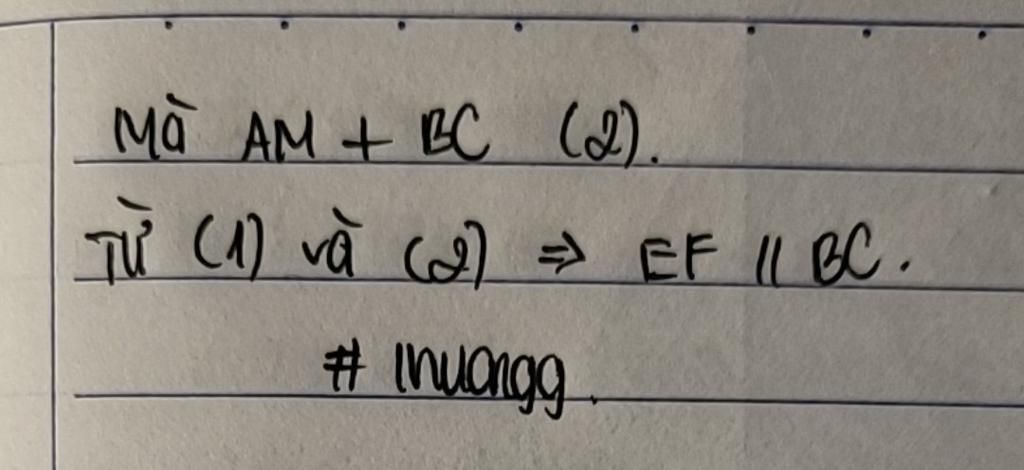 Mà AM + BC (2).
Từ (1) và (2) ⇒ EF // BC.
# lnuongg.